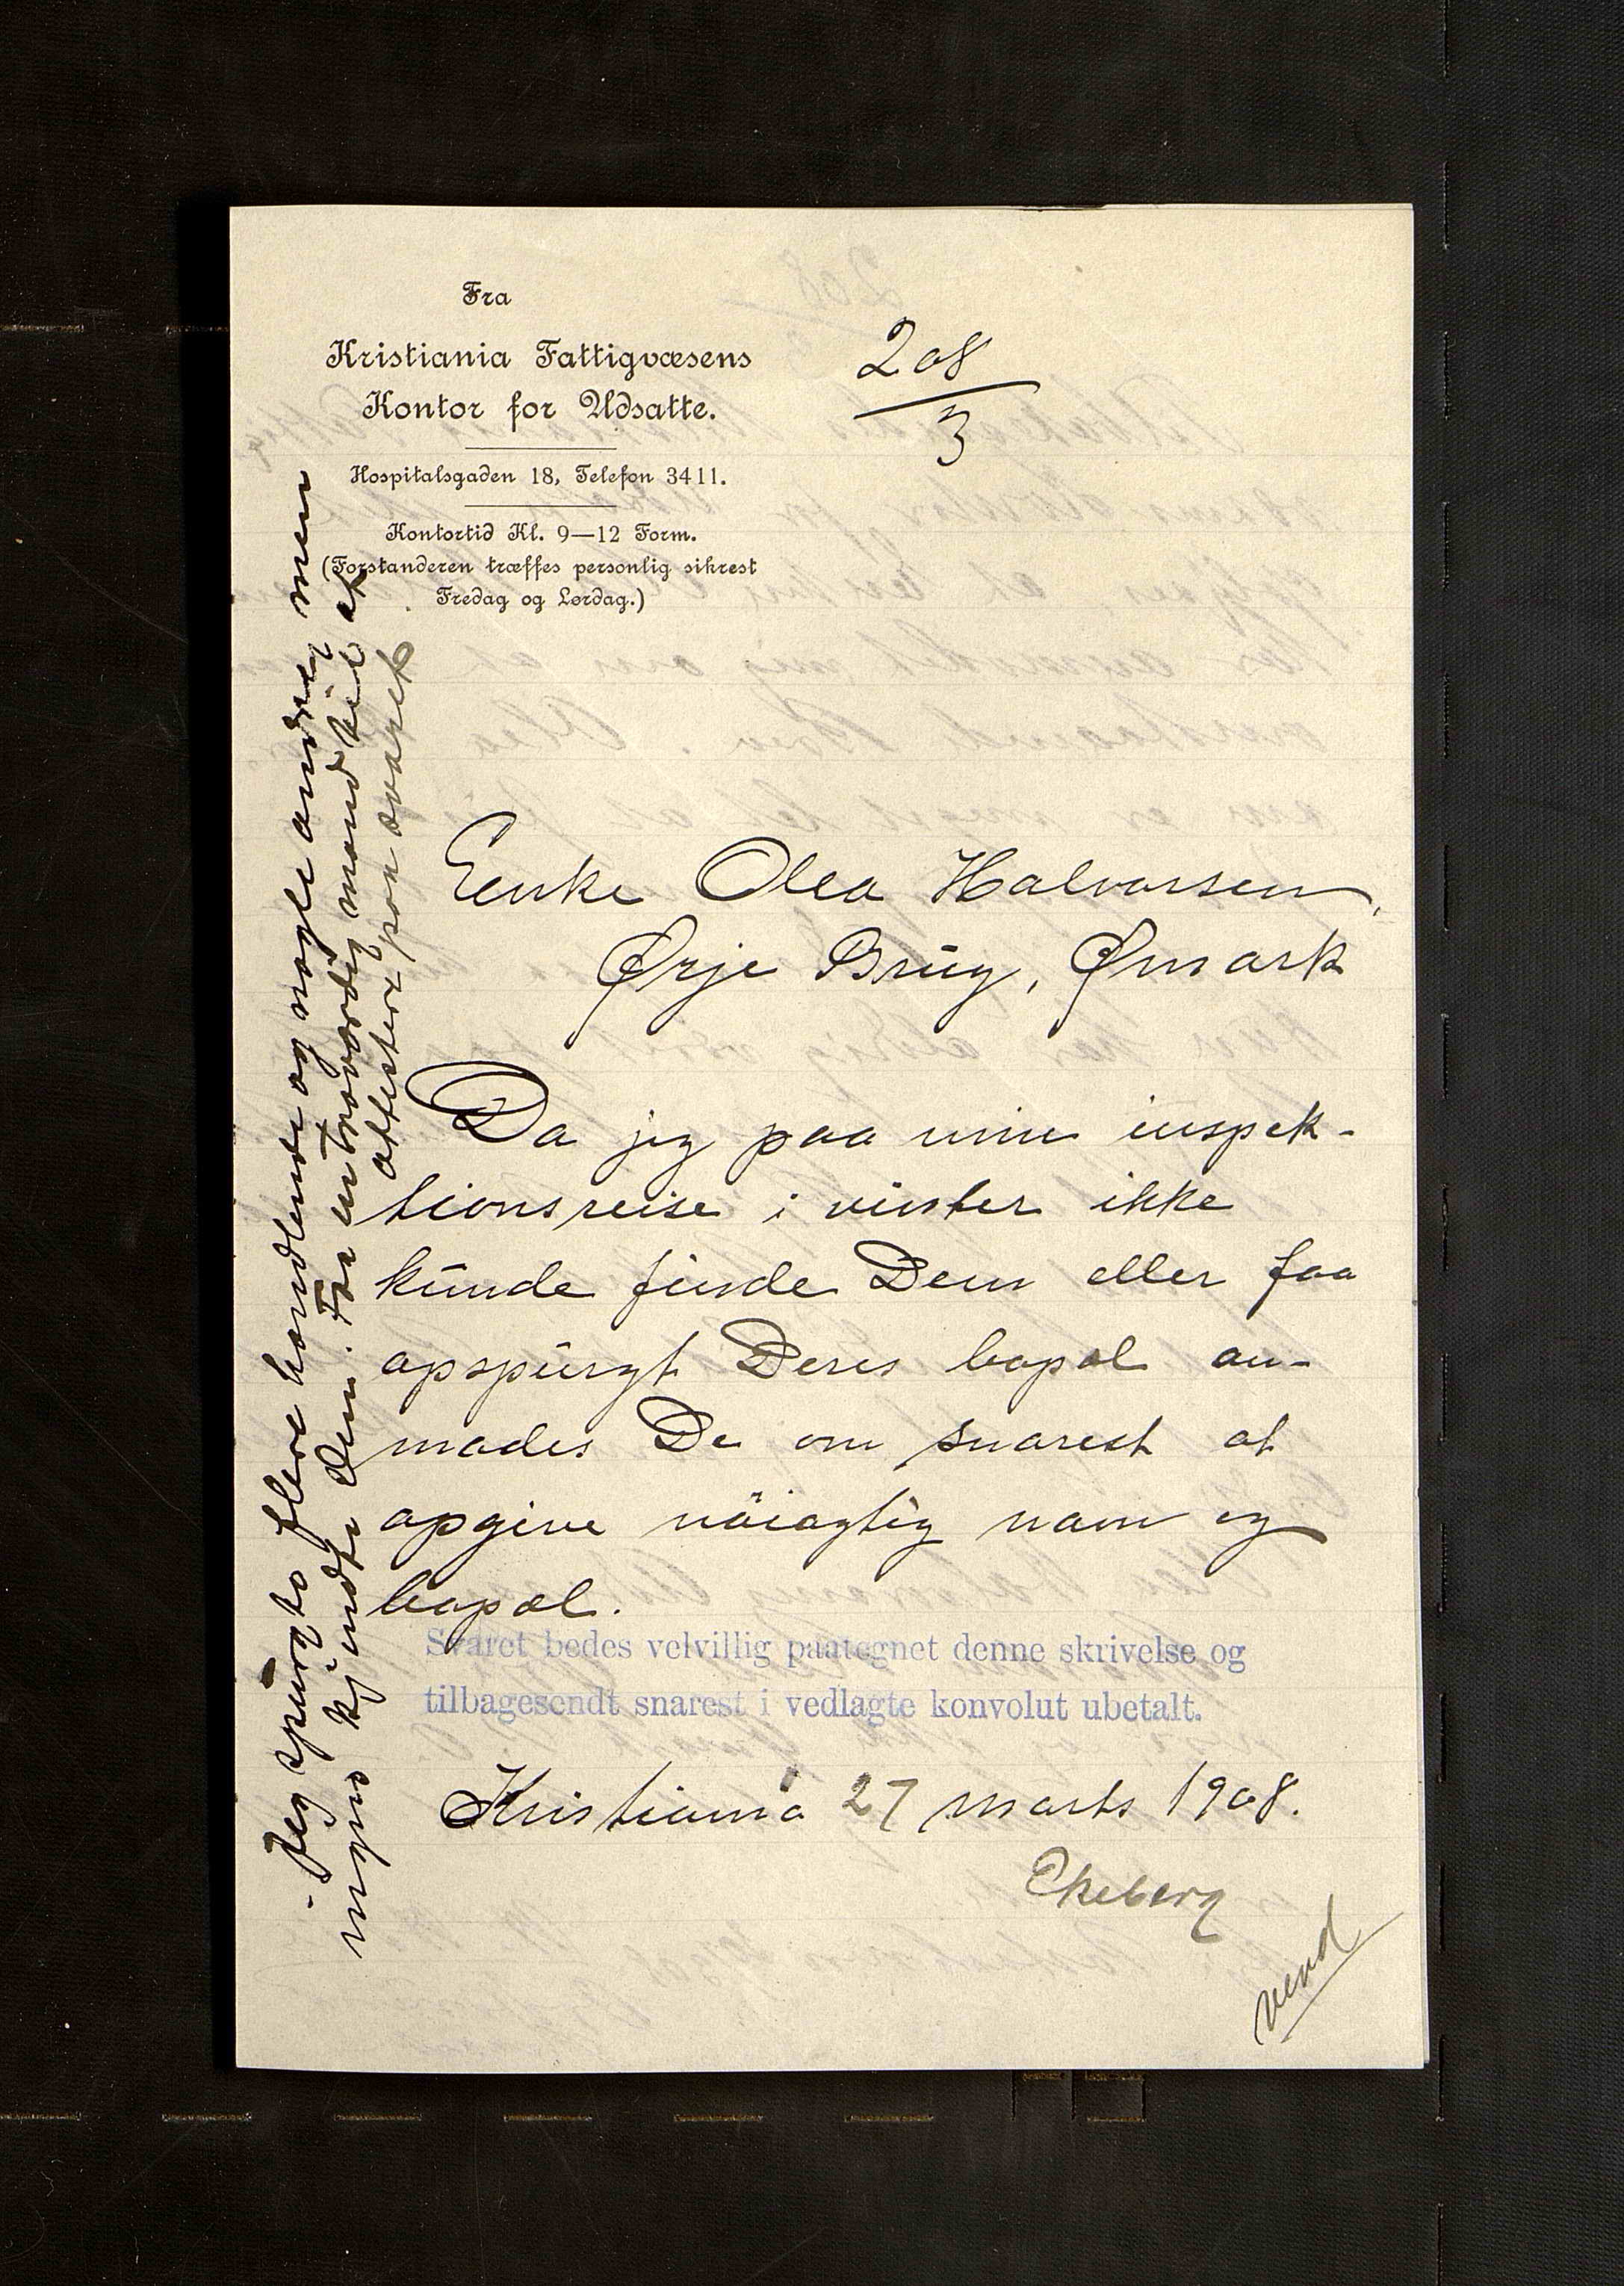 Fra
Kristiania Fattigvæsens
Kontor for Udsatte.
Hospitalsgaden 18, Telefon 3411.
Kontortid Kl. 9—12 Form.
(Forstanderen træffes personlig sikrest
Fredag og Lørdag.)
208
3
Enke Olea Halvorsen,
Ørje Brug, Ømark
Da jeg paa min inspek-
tionsreise i vinter ikke
kunde finde Dem eller faa
opspurgt Deres bopæl an-
modes De om snarest at
opgive nöiagtig navn og
bopæl.
Svaret bedes velvillig paategnet denne skrivelse og
tilbagesendt snarest i vedlagte konvolut ubetalt.
Kristiania 27 marts 1908.
Ekeberg
vend
Jeg spurgte flere handlende og nogle andre men
ingen kjendte Dem. Faa en troværdig mand til at
attestere paa svaret